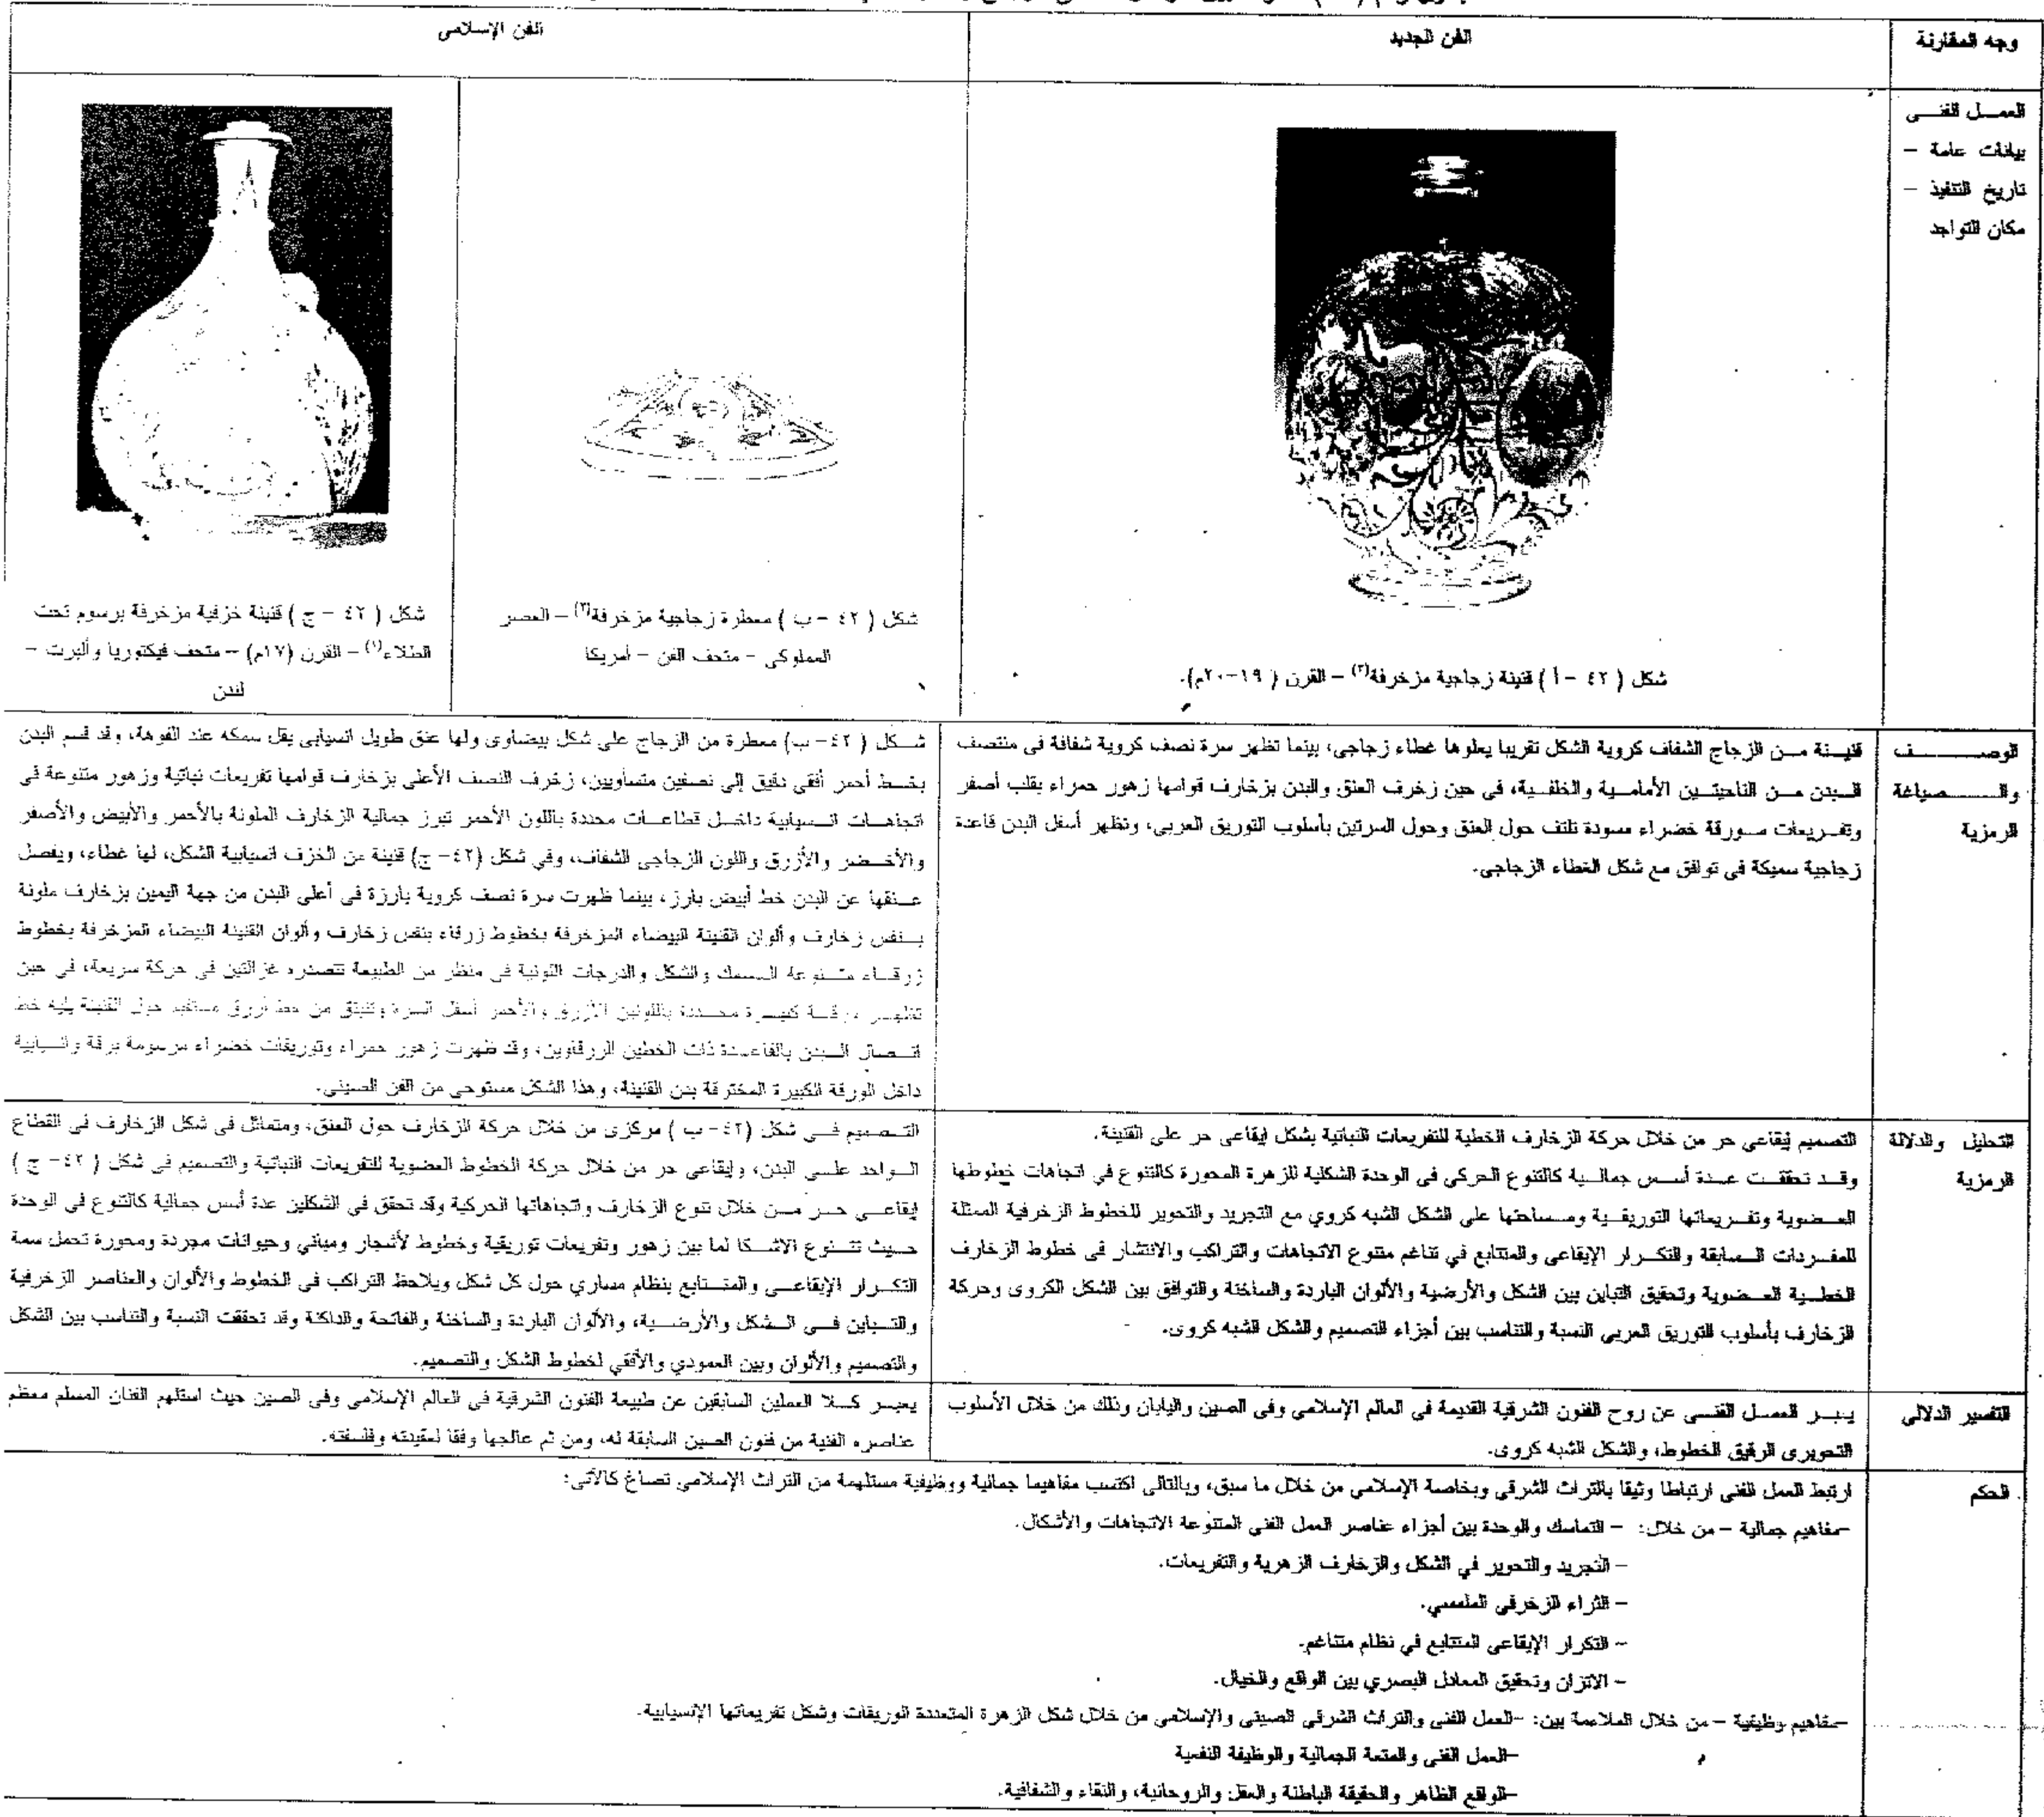 وجه المقارنة
الفن الجديد
الفن الإسلامى
العمل الفنى
بيانات عامة –
تاريخ التنفيذ –
مكان التواجد
شكل ( ٤٢ – أ ) قنينة زجاجية مزخرفة(٢) – القرن ( ١٩–٢٠م).
شكل ( ٤٢ – ب ) معطرة زجاجية مزخرفة(٣) – العصر
المملوكى – متحف الفن – أمريكا
شكل ( ٤٢ – ج ) قنينة خزفية مزخرفة برسوم تحت
الطلاء(١) – القرن (١٧م) – متحف فيكتوريا وألبرت –
لندن
الوصف
والصياغة
الرمزية
قنينة من الزجاج الشفاف كروية الشكل تقريبا يعلوها غطاء زجاجى، بينما تظهر سرة نصف كروية شفافة فى منتصف
البدن من الناحيتين الأمامية والخلفية، فى حين زخرف العنق والبدن بزخارف قوامها زهور حمراء بقلب أصفر
وتفريعات مورقة خضراء مسودة تلتف حول العنق وحول السرتين بأسلوب التوريق العربى، وتظهر أسفل البدن قاعدة
زجاجية سميكة فى توافق مع شكل الغطاء الزجاجى.
شكل ( ٤٢– ب) معطرة من الزجاج على شكل بيضاوى ولها عنق طويل انسيابى يقل سمكه عند الفوهة، وقد قسم البدن
بخط أحمر أفقى دقيق إلى نصفين متساويين، زخرف النصف الأعلى بزخارف قوامها تفريعات نباتية وزهور متنوعة فى
اتجاهات انسيابية داخل قطاعات محددة باللون الأحمر تبرز جمالية الزخارف الملونة بالأحمر والأبيض والأصفر
والأخضر والأزرق واللون الزجاجى الشفاف، وفي شكل (٤٢– ج) قنينة من الخزف انسيابية الشكل، لها غطاء، ويفصل
عنقها عن البدن خط أبيض بارز، بينما ظهرت سرة نصف كروية بارزة فى أعلى البدن من جهة اليمين بزخارف ملونة
بنفس زخارف وألوان القنينة البيضاء المزخرفة بخطوط زرقاء بنفس زخارف وألوان القنينة البيضاء المزخرفة بخطوط
زرقاء متنوعة السمك والشكل والدرجات اللونية فى منظر من الطبيعة تتصدره غزالتين فى حركة سريعة، فى حين
تظهر ورقة كبيرة محددة باللونين الأزرق والأحمر أسفل السرة وتنبثق من خط أزرق حول القنينة يليه خط
اتصال البدن بالقاعدة ذات الخطين الزرقاوين، وقد ظهرت زهور حمراء وتوريقات خضراء مرسومة برقة وانسيابية
داخل الورقة الكبيرة المخترقة بدن القنينة، وهذا الشكل مستوحى من الفن الصينى.
التحليل والدلالة
الرمزية
التصميم إيقاعي حر من خلال حركة الزخارف الخطية للتفريعات النباتية بشكل إيقاعى حر على القنينة.
وقد تحققت عدة أسس جمالية كالتنوع الحركى فى الوحدة الشكلية للزهرة المحورة كالتنوع فى اتجاهات خطوطها
العضوية وتفريعاتها التوريقية ومساحتها على الشكل الشبه كروي مع التجريد والتحوير للخطوط الزخرفية الممثلة
للمفردات السابقة والتكرار الإيقاعى والمتتابع في تناغم متنوع الاتجاهات والتراكب والانتشار فى خطوط الزخارف
الخطية العضوية وتحقيق التباين بين الشكل والأرضية والألوان الباردة والساخنة والتوافق بين الشكل الكروى وحركة
الزخارف بأسلوب التوريق العربى النسبة والتناسب بين أجزاء التصميم والشكل الشبه كروى.
التصميم فى شكل (٤٢– ب ) مركزى من خلال حركة الزخارف حول العنق، ومتماثل فى شكل الزخارف فى القطاع
الواحد على البدن، وإيقاعى حر من خلال حركة الخطوط العضوية للتفريعات النباتية والتصميم فى شكل ( ٤٢– ج )
إيقاعى حر من خلال تنوع الزخارف واتجاهاتها الحركية وقد تحقق في الشكلين عدة أسس جمالية كالتنوع في الوحدة
حيث تتنوع الاشكا لما بين زهور وتفريعات توريقية وخطوط لأشجار ومباني وحيوانات مجردة ومحورة تحمل سمة
التكرار الإيقاعى والمتتابع بنظام مساري حول كل شكل ويلاحظ التراكب فى الخطوط والألوان والعناصر الزخرفية
والتباين فى الشكل والأرضية، والألوان الباردة والساخنة والفاتحة والداكنة وقد تحققت النسبة والتناسب بين الشكل
والتصميم والألوان وبين العمودي والأفقي لخطوط الشكل والتصميم.
التفسير الدلالى
يعبر العمل الفنى عن روح الفنون الشرقية القديمة فى العالم الإسلامى وفى الصين واليابان وذلك من خلال الأسلوب
التحويرى الرقيق الخطوط، والشكل الشبه كروى.
يعبر كلا العملين السابقين عن طبيعة الفنون الشرقية فى العالم الإسلامى وفى الصين حيث استلهم الفنان المسلم معظم
عناصره الفنية من فنون الصين السابقة له، ومن ثم عالجها وفقا لعقيدته وفلسفته.
الحكم
ارتبط العمل الفنى ارتباطا وثيقا بالتراث الشرقي وبخاصة الإسلامي من خلال ما سبق، وبالتالى اكتسب مفاهيما جمالية ووظيفية مستلهمة من التراث الإسلامي تصاغ كالآتى:
–مفاهيم جمالية – من خلال: – التماسك والوحدة بين أجزاء عناصر العمل الفنى المتنوعة الاتجاهات والأشكال.
– التجريد والتحوير في الشكل والزخارف الزهرية والتفريعات.
– الثراء الزخرفى الملمسي.
– التكرار الإيقاعى المتتابع في نظام متناغم.
– الاتزان وتحقيق المعادل البصري بين الواقع والخيال.
–مفاهيم وظيفية – من خلال الملاءمة بين: –العمل الفنى والتراث الشرقي الصينى والإسلامي من خلال شكل الزهرة المتعددة الوريقات وشكل تفريعاتها الإنسيابية.
–العمل الفنى والمتعة الجمالية والوظيفة النفسية
–الواقع الظاهر والحقيقة الباطنة والعقل والروحانية، والنقاء والشفافية.